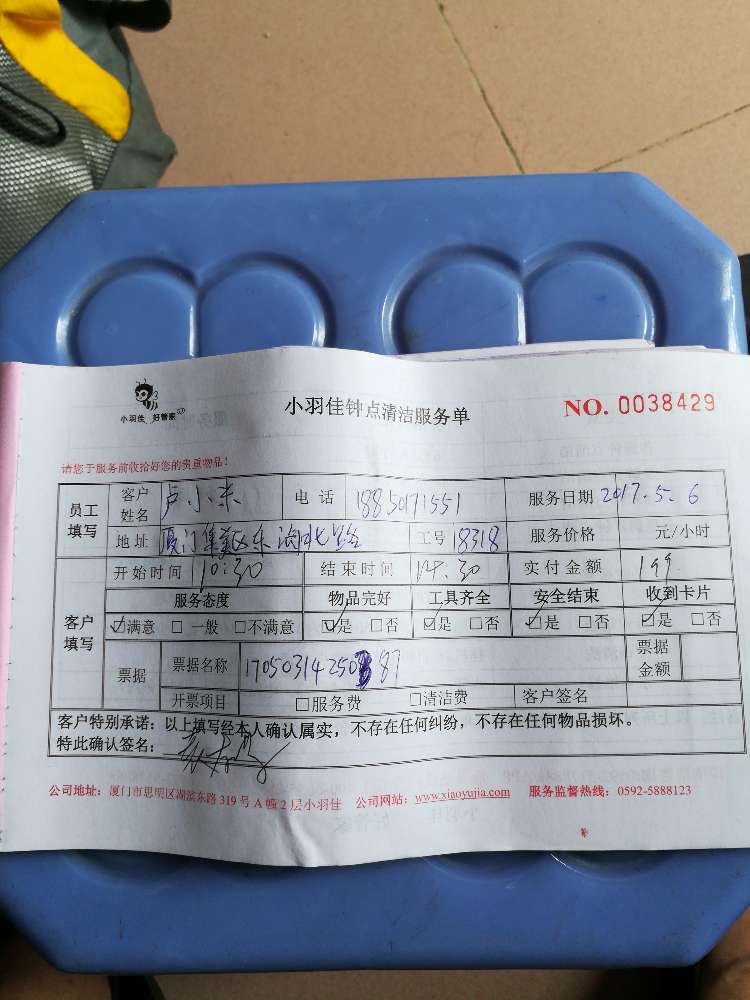 小羽佳 好管家
小羽佳钟点清洁服务单
NO. 0038429
请您于服务前收拾好您的贵重物品!
员工填写 客户姓名 卢小米 电话 18850171551 服务日期 2017.5.6
地址 厦门集美区乐海北里 工号 8318 服务价格 元/小时
客户填写 开始时间 10:30 结束时间 14.30 实付金额 199
服务态度 物品完好 工具齐全 安全结束 收到卡片
☑满意 □一般 □不满意 ☑是 □否 ☑是 □否 ☑是 □否 ☑是 □否
票据 票据名称 170503142503 87 票据金额
开票项目 □服务费 □清洁费 客户签名
客户特别承诺:以上填写经本人确认属实,不存在任何纠纷,不存在任何物品损坏。
特此确认签名:
公司地址:厦门市思明区湖滨东路 319 号 A 幢 2 层小羽佳 公司网站:www.xiaoyujia.com 服务监督热线:0592-5888123